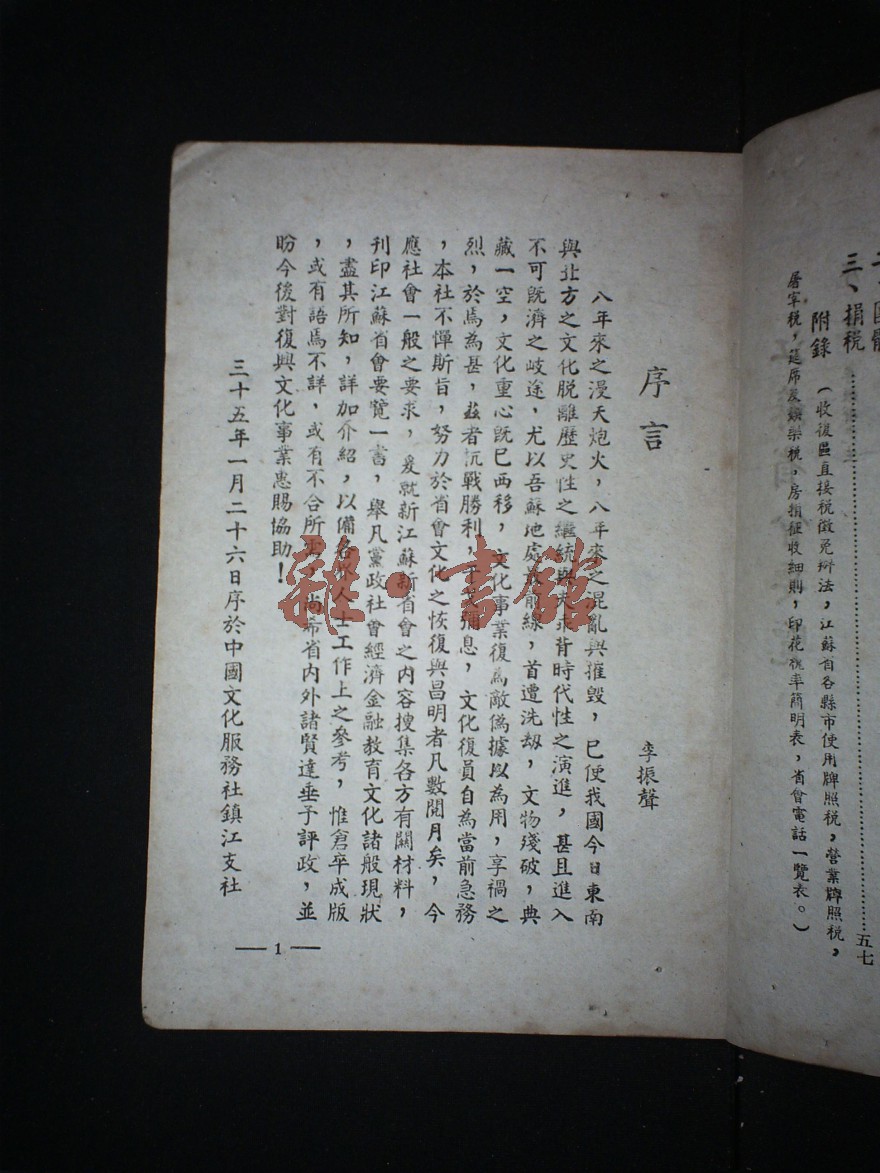 二、團體
三、捐稅……………………五七
附錄（收復區直接稅徵免辦法，江蘇省各縣市使用牌照稅，營業牌照稅，
屠宰稅，筵席及娛樂稅，房捐征收細則，印花稅率簡明表，省會電話一覽表。）
序言
李振聲
八年來之漫天炮火，八年來之混亂與摧毀，已使我國今日東南
與北方之文化脫離歷史性之繼統與失求背時代性之演進，甚且進入
不可旣濟之岐途，尤以吾蘇地處最前線，首遭洗刼，文物殘破，典
藏一空，文化重心旣已西移，文化事業復為敵偽據以為用，享禍之
烈，於焉為甚，茲者抗戰勝利，干戈彌息，文化復員自為當前急務
，本社不憚斯旨，努力於省會文化之恢復與昌明者凡數閱月矣，今
應社會一般之要求，爰就新江蘇新省會之內容搜集各方有關材料，
刊印江蘇省會要覽一書，舉凡黨政社會經濟金融教育文化諸般現狀
，盡其所知，詳加介紹，以備各界人士工作上之參考，惟倉卒成版
，或有語焉不詳，或有不合所需，尚希省內外諸賢達垂予評政，並
盼今後對復興文化事業惠賜協助！
三十五年一月二十六日序於中國文化服務社鎮江支社
— 1 —
雜·書館